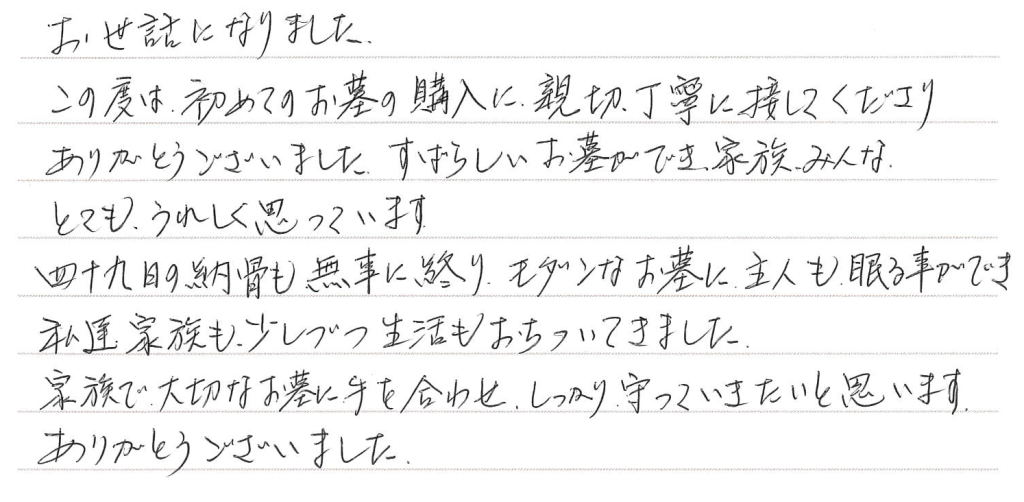 お世話になりました.
この度は、初めてのお墓の購入に、親切、丁寧に接してくださり
ありがとうございました. すばらしいお墓ができ、家族、みんな、
とても、うれしく思っています.
四十九日の納骨も無事に終り、モダンなお墓に、主人も、眠る事ができ
私達、家族も、少しづつ生活もおちついてきました.
家族で、大切なお墓に手を合わせ、しっかり、守っていきたいと思います.
ありがとうございました.